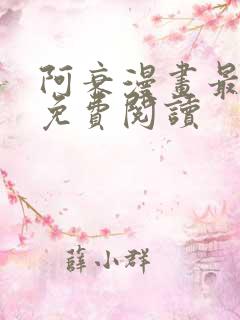 阿衰漫畫最
免費閱讀
薛小群